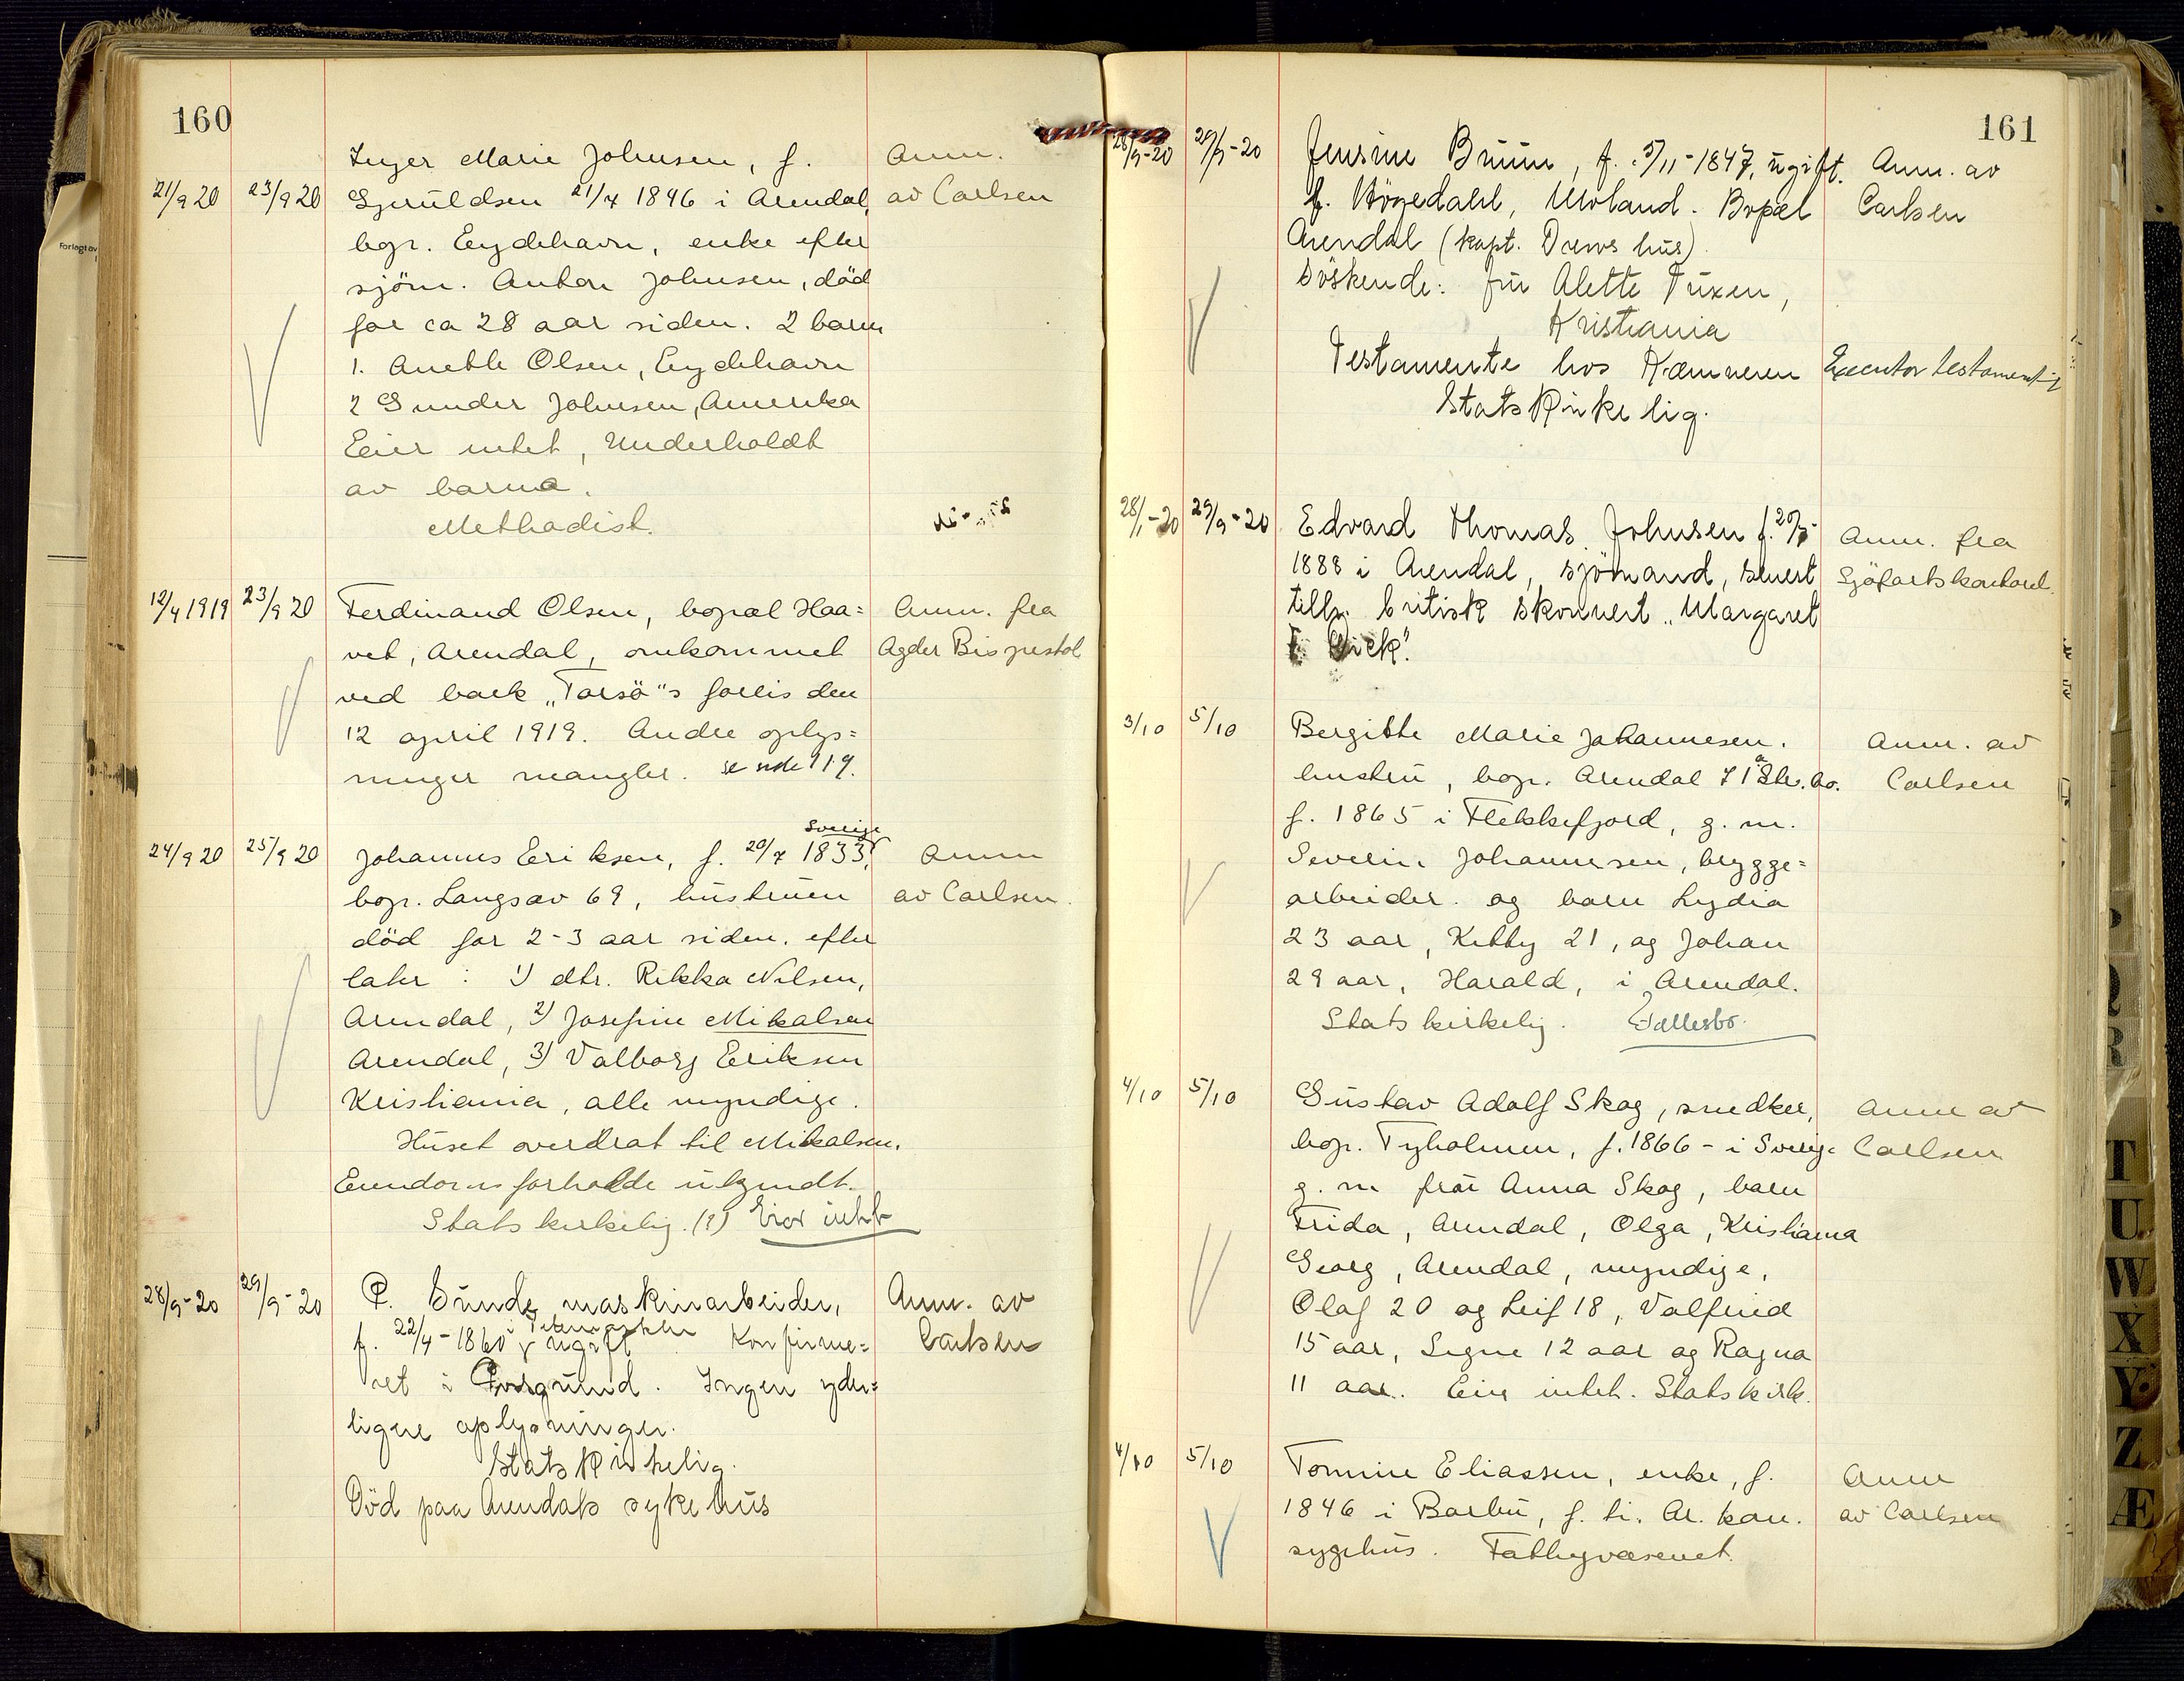 160
21/9 20 23/9 20
Inger Marie Johnsen, f. Anm.
Gjeruldsen 21/7 1846 i Arendal, av Carlsen
bop. Eydehavn, enke efter
sjöm. Anton Johnsen, död
for ca 28 aar siden. 2 barn
1. Anethe Olsen, Eydehavn
2 Gunder Johnsen, Amerika
Eier intet, Underholdt
av barna.
Methodist.
12/4 1919 23/9 20 Ferdinand Olsen, bopæl Haa= Anm. fra
vet, Arendal, omkommet Agder Bispestol
ved bark „Torsö"s forlis den
12 april 1919. Andre oplys=
ninger mangler. se side 119.
Sverige
24/9 20 25/9 20 Johannes Eriksen, f. 20/7 1833, Anm
bop. Langsæv 69, hustruen av Carlsen.
död for 2-3 aar siden. efter
later : 1) dtr. Rikka Nilsen,
Arendal, 2) Josefine Mikalsen
Arendal, 3) Valborg Eriksen
Kristiania, alle myndige.
Huset overdrat til Mikalsen.
Eiendomsforholde ukjendt.
Statskirkelig. (?) Eier intet
28/9-20 29/9-20 P. Sunde, maskinarbeider, Anm. av
f. 22/4-1860 i Telemarken ugift. Konfirme= Carlsen
ret i Porsgrund. Ingen yder=
ligere oplysninger.
Statskirkelig.
Död paa Arendals sykehus
161
28/9-20 29/9-20 Jensine Bruun, f. 5/11-1847, ugift. Anm. av
f. Högedahl, Moland. Bopæl Carlsen
Arendal (kapt. Drews hus).
Söskende: fru Alette Tuxen,
Kristiania
Testamente hos Kæmneren Executor testamenti
Statskirkelig.
28/1-20 29/9-20 Edvard Thomas Johnsen f. 20/7- Anm. fra
1888 i Arendal, sjömand, senest Sjöfartskontoret.
tilh. britisk skonnert „Margaret
F. Dick".
3/10 5/10 Bergitte Marie Johannesen. Anm. av
hustru, bop. Arendal 71a Str.bo. Carlsen
f. 1865 i Flekkefjord, g. m.
Severin Johannesen, brygge=
arbeider. og barn Lydia
23 aar, Kitty 21, og Johan
29 aar, Harald, i Arendal.
Statskirkelig.
4/10 5/10 Gustav Adolf Skog, snedker, Anm av
bop. Tyholmen, f. 1866 - i Sverige Carlsen
g. m fru Anna Skog, barn
Frida, Arendal, Olga, Kristiania
Georg, Arendal, myndige,
Olaf 20 og Leif 18, Valfrid
15 aar, Signe 12 aar og Ragna
11 aar. Eier intet. Statskirk.
4/10 5/10 Tomine Eliassen, enke, f. Anm
1846 i Barbu, f. ti. Ar. kom. av Carlsen
sygehus. Fattigvæsenet.
T
U
W
X
Y
Z
Æ